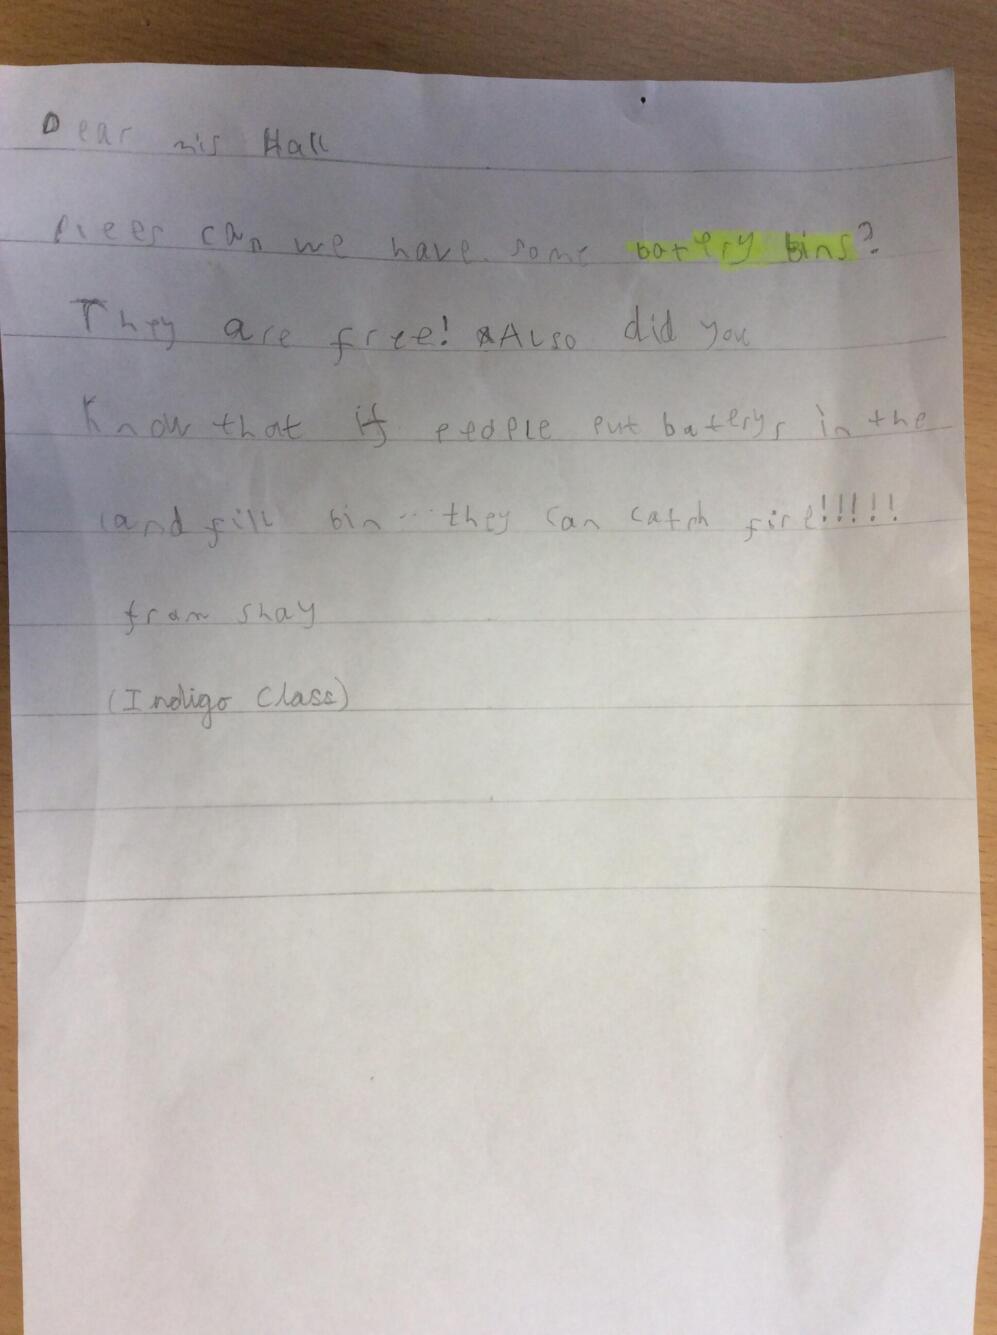 Dear mis Hall
plees can we have some battery bins?
They are free! Also did you
know that if people put batterys in the
land fill bin... they can catch fire!!!!!
from Shay
(Indigo Class)